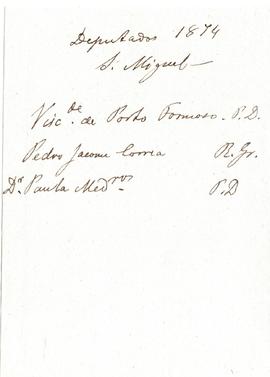 Deputados 1874
S. Miguel
Visc.de de Porto Formoso. P. D.
Pedro Jacome Correa R. Gr.
Dr. Paula Med.ros P. D